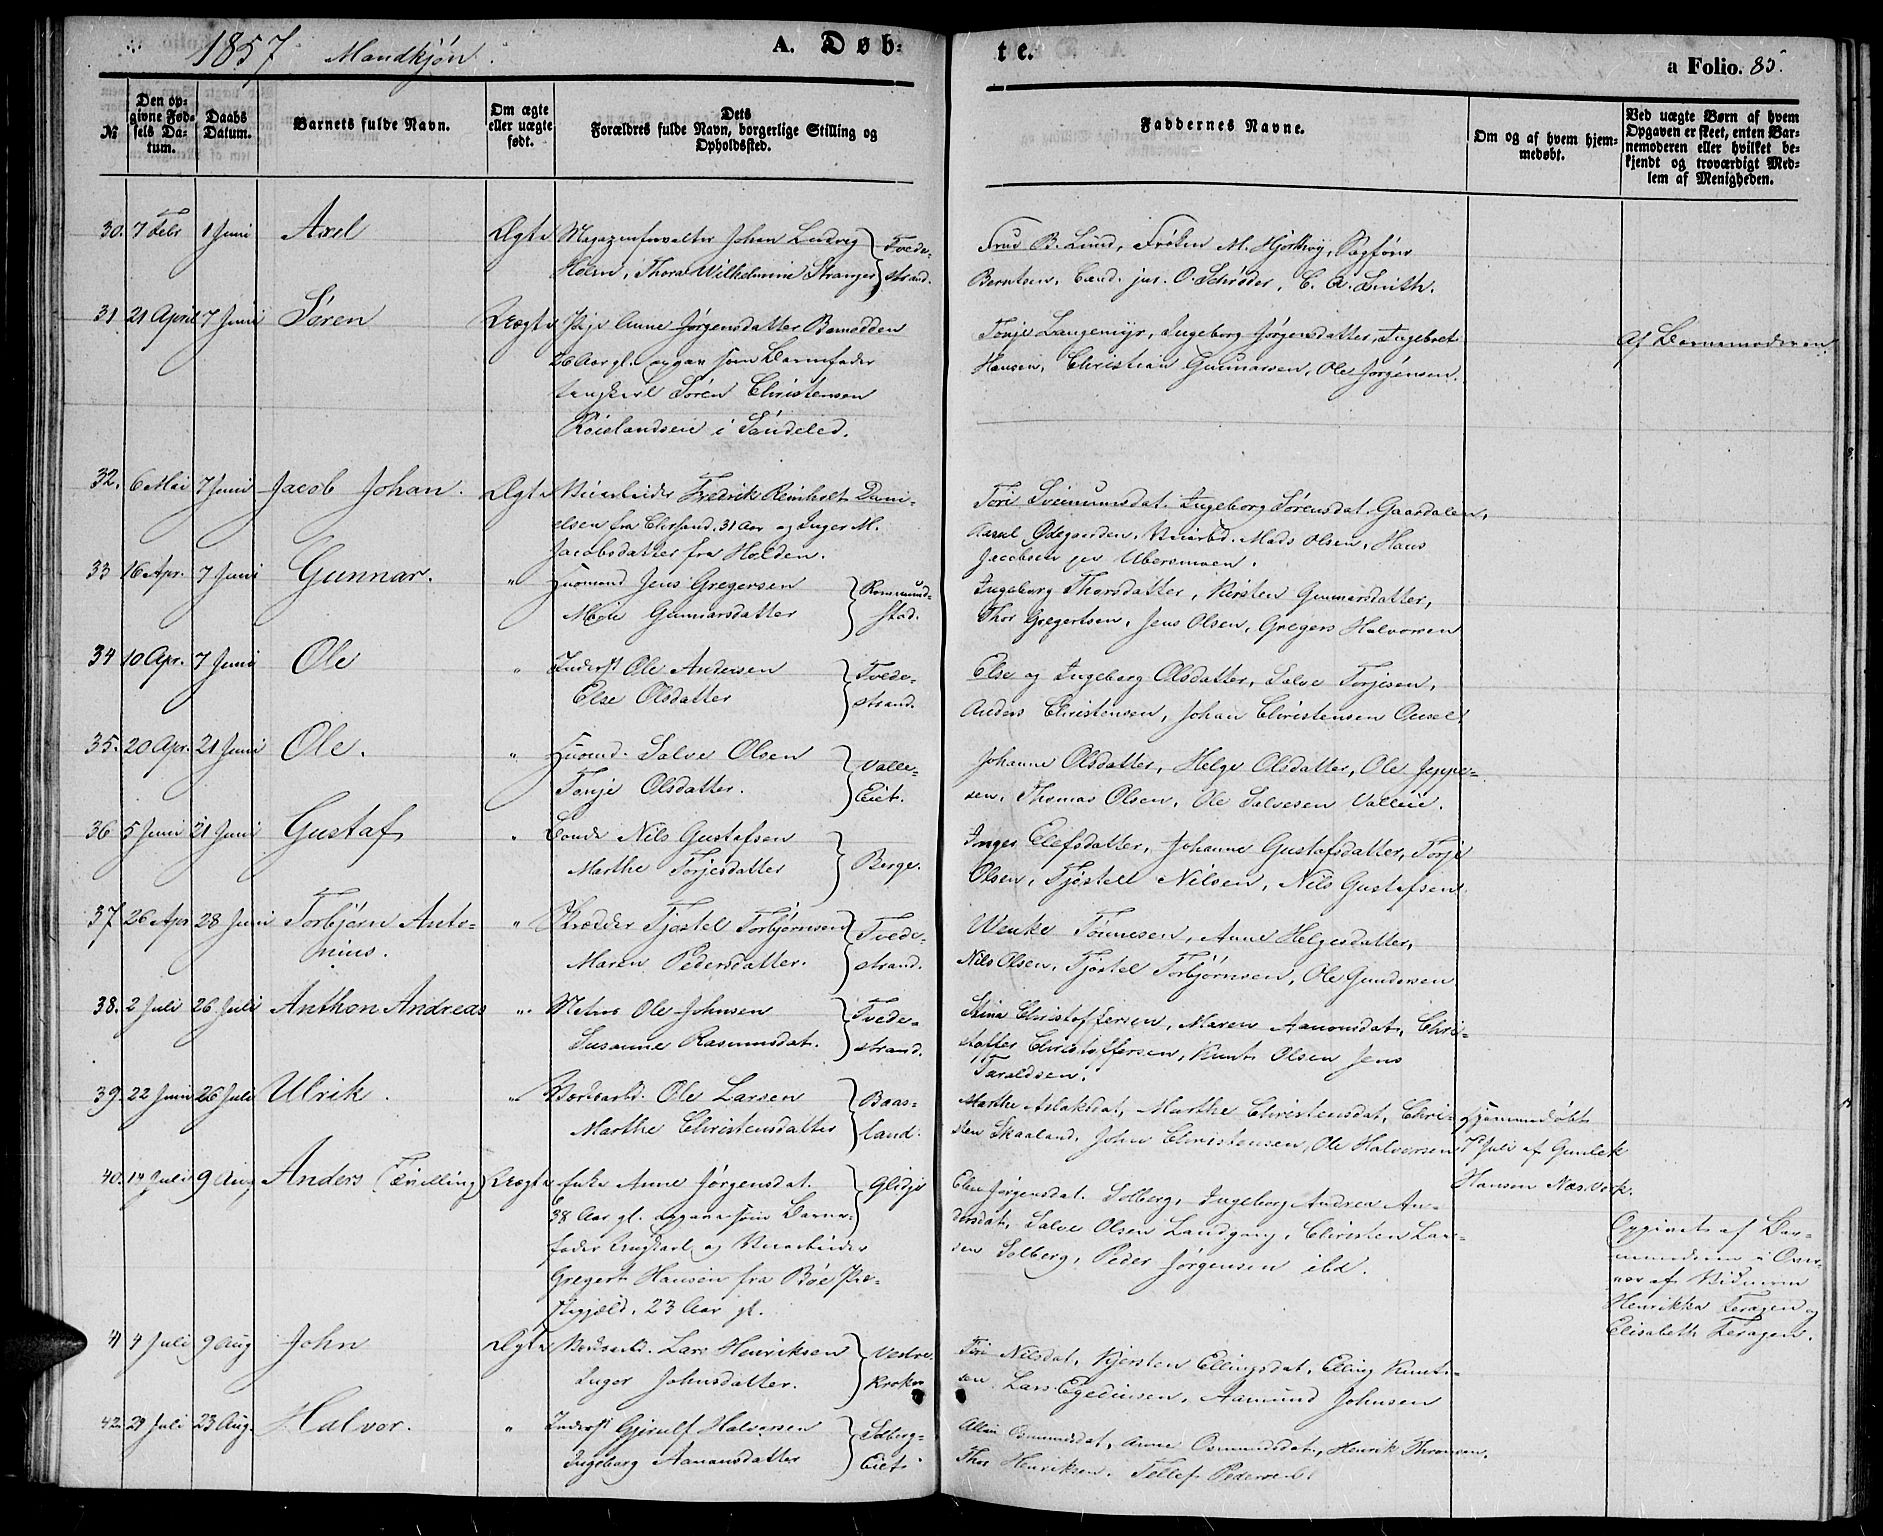 1857 Mandkjøn.
A. Døb-
te.
a Folio. 85.
№
Den op-
givne Fød-
sels Da-
tum.
Daabs
Datum.
Barnets fulde Navn.
Om ægte
eller uægte
født.
Dets
Forældres fulde Navn, borgerlige Stilling og
Opholdssted.
Faddernes Navne.
Om og af hvem hjem-
medøbt.
Ved uægte Børn af hvem
Opgaven er skeet, enten Bar-
nemoderen eller hvilket be-
kjendt og troværdigt Med-
lem af Menigheden.
30. 7 Febr 1 Juni Axel Ægte Magazenforvalter Johan Ludvig
Horn, Thora Wilhelmine Stranger
Tvede-
strand.
Frue B. Lund, Frøken M. Hjorthøy, Sagfører
Berntsen, Cand. jur. O. Schrøder, C. A. Smith.
31 21 April 7 Juni Søren Uægte Pige Anne Jørgensdatter
26 Aar gl. opgav som Barnefader
Ungkarl Søren Christensen
i Søndeled.
Tonje Langemyr, Ingeborg Jørgensdatter, Ingebret
Hansen, Christian Gunnarsen, Ole Jørgensen.
Af Barnemoderen.
32. 6 Mai 7 Juni Jacob Johan. Ægte Veiarbeider Fredrik Reinholt Dani-
elsen fra Chrsand, 31 Aar og Inger M.
Jacobsdatter fra Holden.
Tori Ingeborg Sørensdat. Gaardalen,
Ødegaarden, Veiarbd. Mads Olsen, Hans
Jacobsen
33 16 Apr. 7 Juni Gunnar. " Huusmand Jens Gregersen
Gunnarsdatter
Rommund-
stad.
Ingeborg Thorsdatter, Kirsten Gunnarsdatter,
Thor Gregertsen, Jens Olsen, Gregers Halvorsen
34 10 Apr. 7 Juni Ole " Inderst Ole Andersen
Else Olsdatter
Tvede-
strand.
Else og Ingeborg Olsdatter, Salve Torjesen,
Anders Christensen, Johan Christensen
35. 20 Apr. 21 Juni Ole. " Huusmd. Salve Olsen
Tonje Olsdatter.
Valle-
Eiet.
Johanne Olsdatter, Helge Olsdatter, Ole Jeppe-
sen, Thomas Olsen, Ole Salvesen
36 5 Juni 21 Juni Gustaf " Bonde Nils Gustafsen
Marthe Torjesdatter
Berge.
Inger Elefsdatter, Johanne Gustafsdatter, Torje
Olsen, Tjøstel Nilsen, Nils Gustafsen
37. 26 Apr 28 Juni Torbjørn Anto-
nius. " Skrædder Tjøstel Torbjørnsen
Maren Pedersdatter.
Tvede-
strand.
Wenke Tønnesen, Anne Helgesdatter,
Nils Olsen, Tjøstel Torbjørnsen, Ole Gundersen
38. 2 Juli 26 Juli Anthon Andreas " Matros Ole Johnsen
Susanne Rasmusdat.
Tvede-
strand.
Stina Christoffersen, Maren Aanonsdat, Chri-
stoffer Christoffersen, Knut Olsen Jens
Taraldsen.
39. 22 Juni 26 Juli Ulrik. " Ole Larsen
Marthe Christensdatter
Baas-
land.
Marthe Aslaksdat, Marthe Christensdat, Chri-
sten Skaaland, John Christensen, Ole Halvorsen
Hjemmedøbt
7 Juli af Gunlek
Hansen Næs Verk.
40. 14 Juli 9 Aug Anders (Tvilling) Uægte Enke Anne Jørgensdat.
38 Aar gl. opgav som Barne-
fader Ungkarl og Veiarbeider
Gregert Hansen fra Bøe Præ-
stegjæld, 23 Aar gl.
Glidje
Elen Jørgensdat. Solberg, Ingeborg Andrea An-
dersdat, Salve Olsen Landgang, Christen Lar-
sen Solberg, Peder Jørgensen ibd.
Opgivet af Bar-
nemoderen i Over-
vær af Vidnerne
Henrikka Feragen og
Elisabeth Feragen.
41 4 Juli 9 Aug John Ægte Lars Henriksen
Inger Johnsdatter.
Vestre-
Nilsdat, Kjersten Ellingsdat, Elling Knuts-
en, Lars Egedinsen, Aamund Johnsen
42. 29 Juli 23 Aug. Halvor. " Inderst Gjerulf Halvorsen
Ingeborg Aanonsdatter
Solberg-
Eiet.
Osmundsdat, Anne Osmundsdat, Henrik Thronsen.
Thor Henriksen, Tellef Pedersen